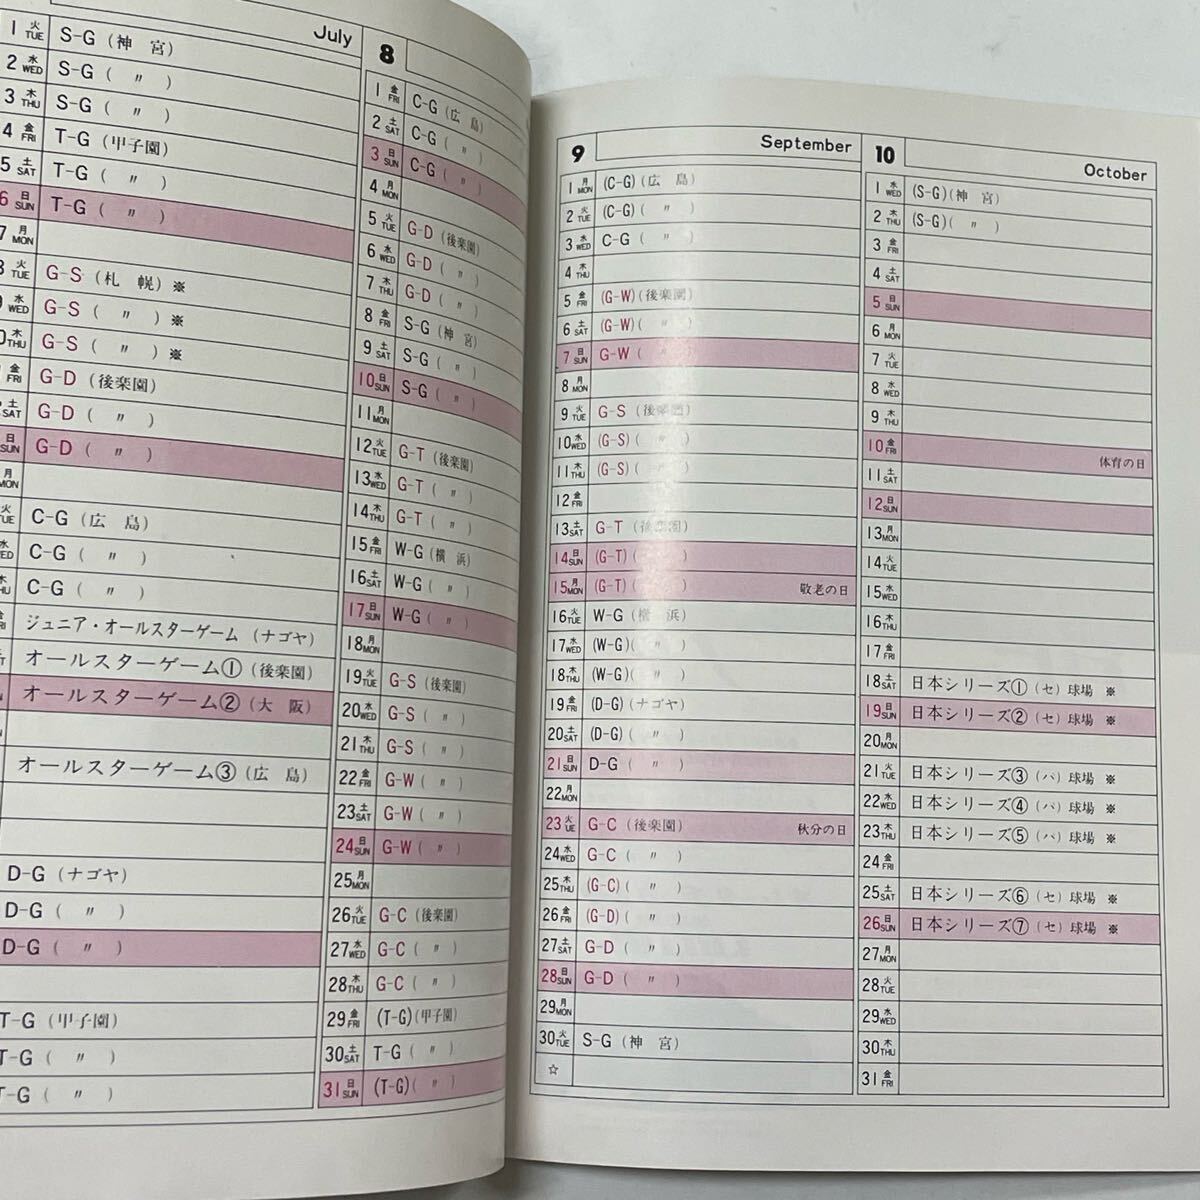 July
1 火 TUE S-G (神 宮)
2 水 WED S-G ( 〃 )
3 木 THU S-G ( 〃 )
4 金 FRI T-G (甲子園)
5 土 SAT T-G ( 〃 )
6 日 SUN T-G ( 〃 )
7 月 MON
8 火 TUE G-S (札 幌) ※
9 水 WED G-S ( 〃 ) ※
0 木 THU G-S ( 〃 ) ※
金 FRI G-D (後楽園)
土 SAT G-D ( 〃 )
日 SUN G-D ( 〃 )
月 MON
火 TUE C-G (広 島)
水 WED C-G ( 〃 )
木 THU C-G ( 〃 )
金 FRI ジュニア・オールスターゲーム (ナゴヤ)
オールスターゲーム① (後楽園)
オールスターゲーム② (大 阪)
オールスターゲーム③ (広 島)
D-G (ナゴヤ)
D-G ( 〃 )
D-G ( 〃 )
T-G (甲子園)
T-G ( 〃 )
T-G ( 〃 )
8
1 金 FRI C-G (広 島)
2 土 SAT C-G ( 〃 )
3 日 SUN C-G ( 〃 )
4 月 MON
5 火 TUE G-D (後楽園)
6 水 WED G-D ( 〃 )
7 木 THU G-D ( 〃 )
8 金 FRI S-G (神 宮)
9 土 SAT S-G ( 〃 )
10 日 SUN S-G ( 〃 )
11 月 MON
12 火 TUE G-T (後楽園)
13 水 WED G-T ( 〃 )
14 木 THU G-T ( 〃 )
15 金 FRI W-G (横 浜)
16 土 SAT W-G ( 〃 )
17 日 SUN W-G ( 〃 )
18 月 MON
19 火 TUE G-S (後楽園)
20 水 WED G-S ( 〃 )
21 木 THU G-S ( 〃 )
22 金 FRI G-W ( 〃 )
23 土 SAT G-W ( 〃 )
24 日 SUN G-W ( 〃 )
25 月 MON
26 火 TUE G-C (後楽園)
27 水 WED G-C ( 〃 )
28 木 THU G-C ( 〃 )
29 金 FRI (T-G) (甲子園)
30 土 SAT T-G ( 〃 )
31 日 SUN (T-G) ( 〃 )
9 September
1 月 MON (C-G) (広 島)
2 火 TUE (C-G) ( 〃 )
3 水 WED C-G ( 〃 )
4 木 THU
5 金 FRI (G-W) (後楽園)
6 土 SAT (G-W) ( 〃 )
7 日 SUN G-W ( 〃 )
8 月 MON
9 火 TUE G-S (後楽園)
10 水 WED (G-S) ( 〃 )
11 木 THU (G-S) ( 〃 )
12 金 FRI
13 土 SAT G-T (後楽園)
14 日 SUN (G-T) ( 〃 )
15 月 MON (G-T) ( 〃 ) 敬老の日
16 火 TUE W-G (横 浜)
17 水 WED (W-G) ( 〃 )
18 木 THU (W-G) ( 〃 )
19 金 FRI (D-G) (ナゴヤ)
20 土 SAT (D-G) ( 〃 )
21 日 SUN D-G ( 〃 )
22 月 MON
23 火 TUE G-C (後楽園) 秋分の日
24 水 WED G-C ( 〃 )
25 木 THU (G-C) ( 〃 )
26 金 FRI (G-D) ( 〃 )
27 土 SAT G-D ( 〃 )
28 日 SUN G-D ( 〃 )
29 月 MON
30 火 TUE S-G (神 宮)
☆
10 October
1 水 WED (S-G) (神 宮)
2 木 THU (S-G) ( 〃 )
3 金 FRI
4 土 SAT
5 日 SUN
6 月 MON
7 火 TUE
8 水 WED
9 木 THU
10 金 FRI 体育の日
11 土 SAT
12 日 SUN
13 月 MON
14 火 TUE
15 水 WED
16 木 THU
17 金 FRI
18 土 SAT 日本シリーズ① (セ) 球場 ※
19 日 SUN 日本シリーズ② (セ) 球場 ※
20 月 MON
21 火 TUE 日本シリーズ③ (パ) 球場 ※
22 水 WED 日本シリーズ④ (パ) 球場 ※
23 木 THU 日本シリーズ⑤ (パ) 球場 ※
24 金 FRI
25 土 SAT 日本シリーズ⑥ (セ) 球場 ※
26 日 SUN 日本シリーズ⑦ (セ) 球場 ※
27 月 MON
28 火 TUE
29 水 WED
30 木 THU
31 金 FRI